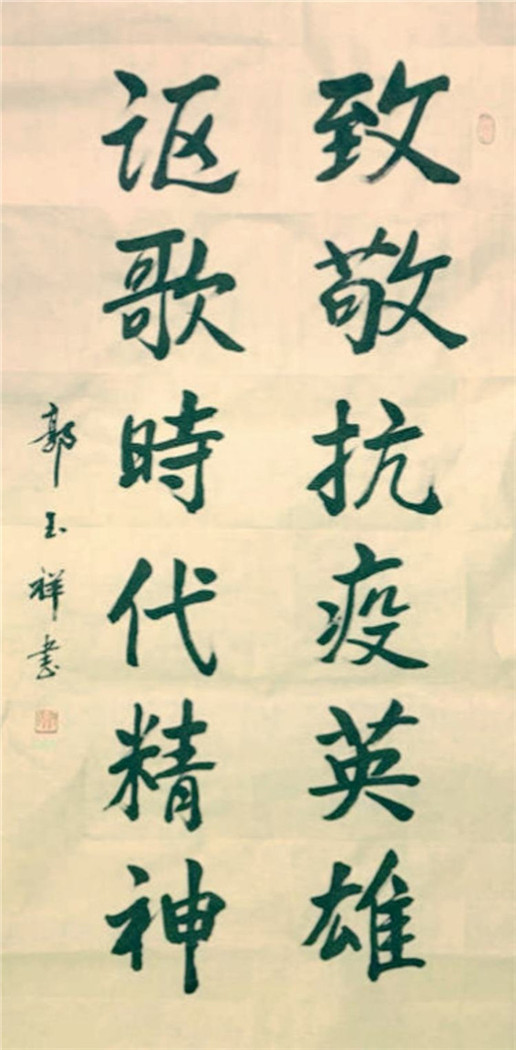 致敬抗疫英雄
讴歌時代精神
郭玉祥書